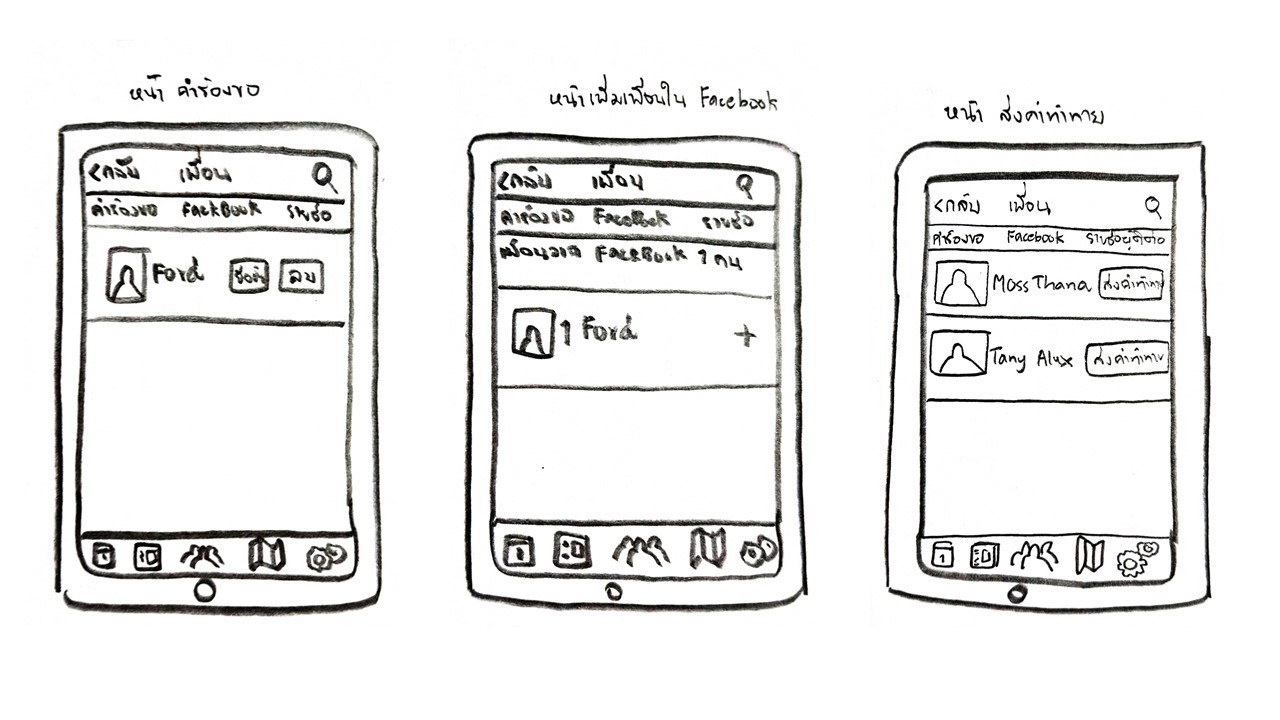 หน้า คำร้องขอ
<กลับ เพื่อน
คำร้องขอ FackBook รายชื่อ
Ford ลบ
หน้าเพิ่มเพื่อนใน Facebook
<กลับ เพื่อน
คำร้องขอ FaceBook รายชื่อ
เพื่อนจาก FackBook 1 คน
1 Ford +
หน้า ส่งคำท้าทาย
<กลับ เพื่อน
คำร้องขอ Facebook รายชื่อผู้ติดต่อ
Moss Thana ส่งคำท้าทาย
Tany Alux ส่งคำท้าทาย